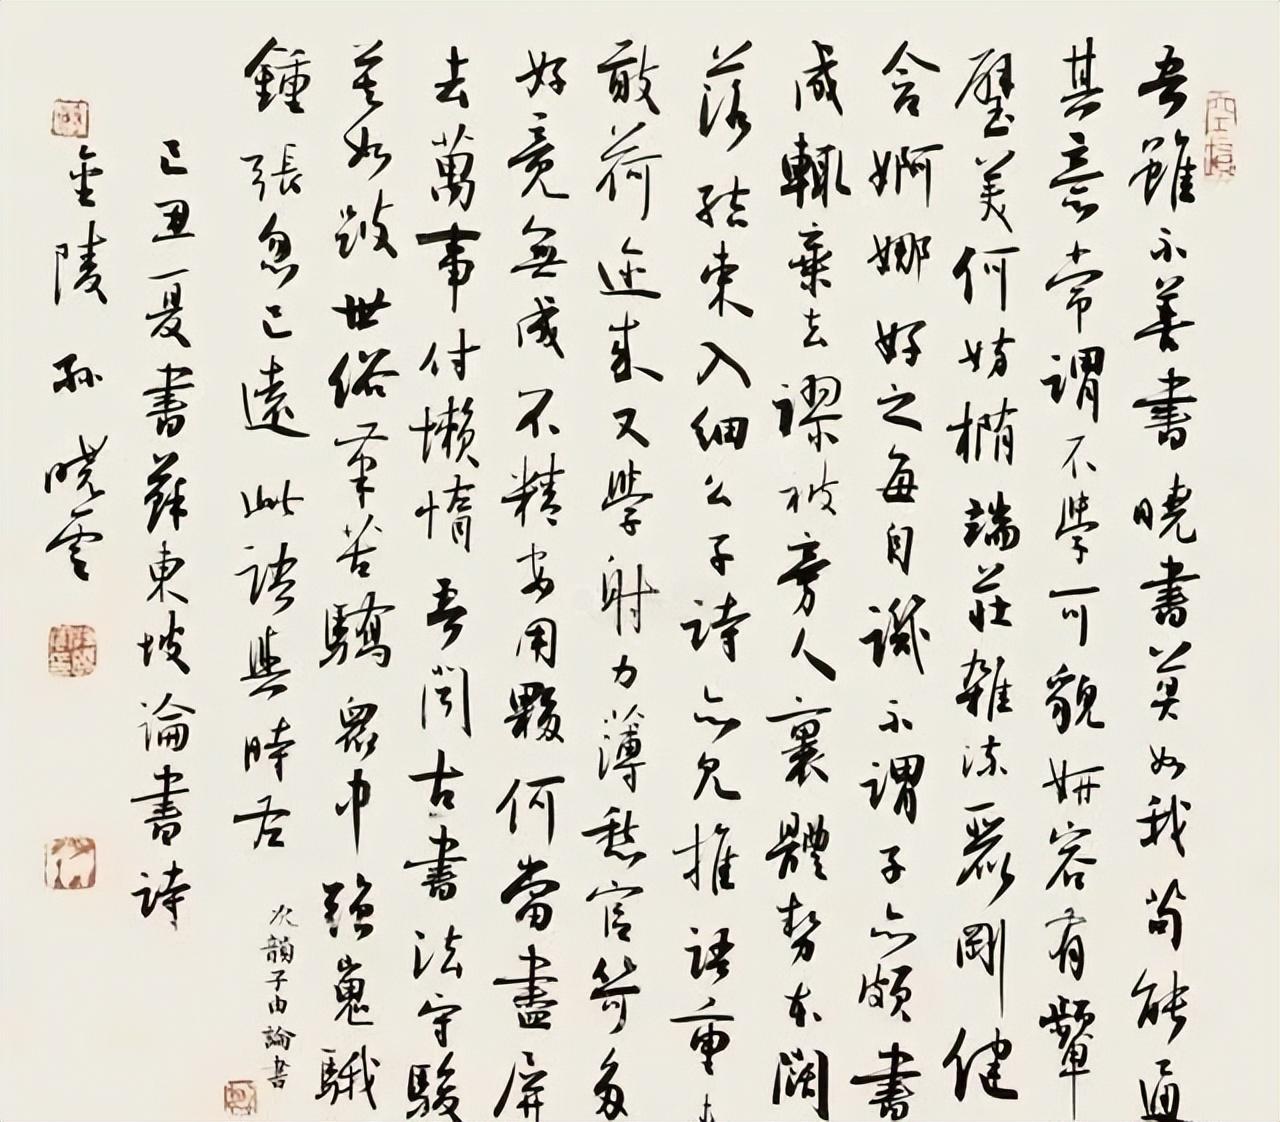 吾雖不善書曉書莫如我苟能通
其意常謂不學可貌妍容有顰
璧美何妨橢端莊雜流麗剛健
含婀娜好之每自譏不謂子亦頗書
成輒棄去謬被旁人裹體勢本闊
落結束入細么子詩亦見推語重
敢荷迩來又學射力薄愁官笴多
好竟無成不精安用夥何當盡屏
去萬事付懶惰吾聞古書法守駿
莫如跛世俗筆苦驕眾中強嵬騀
鍾張忽已遠此語與時左
次韻子由論書
己丑夏書蘇東坡論書詩
金陵孫曉雲